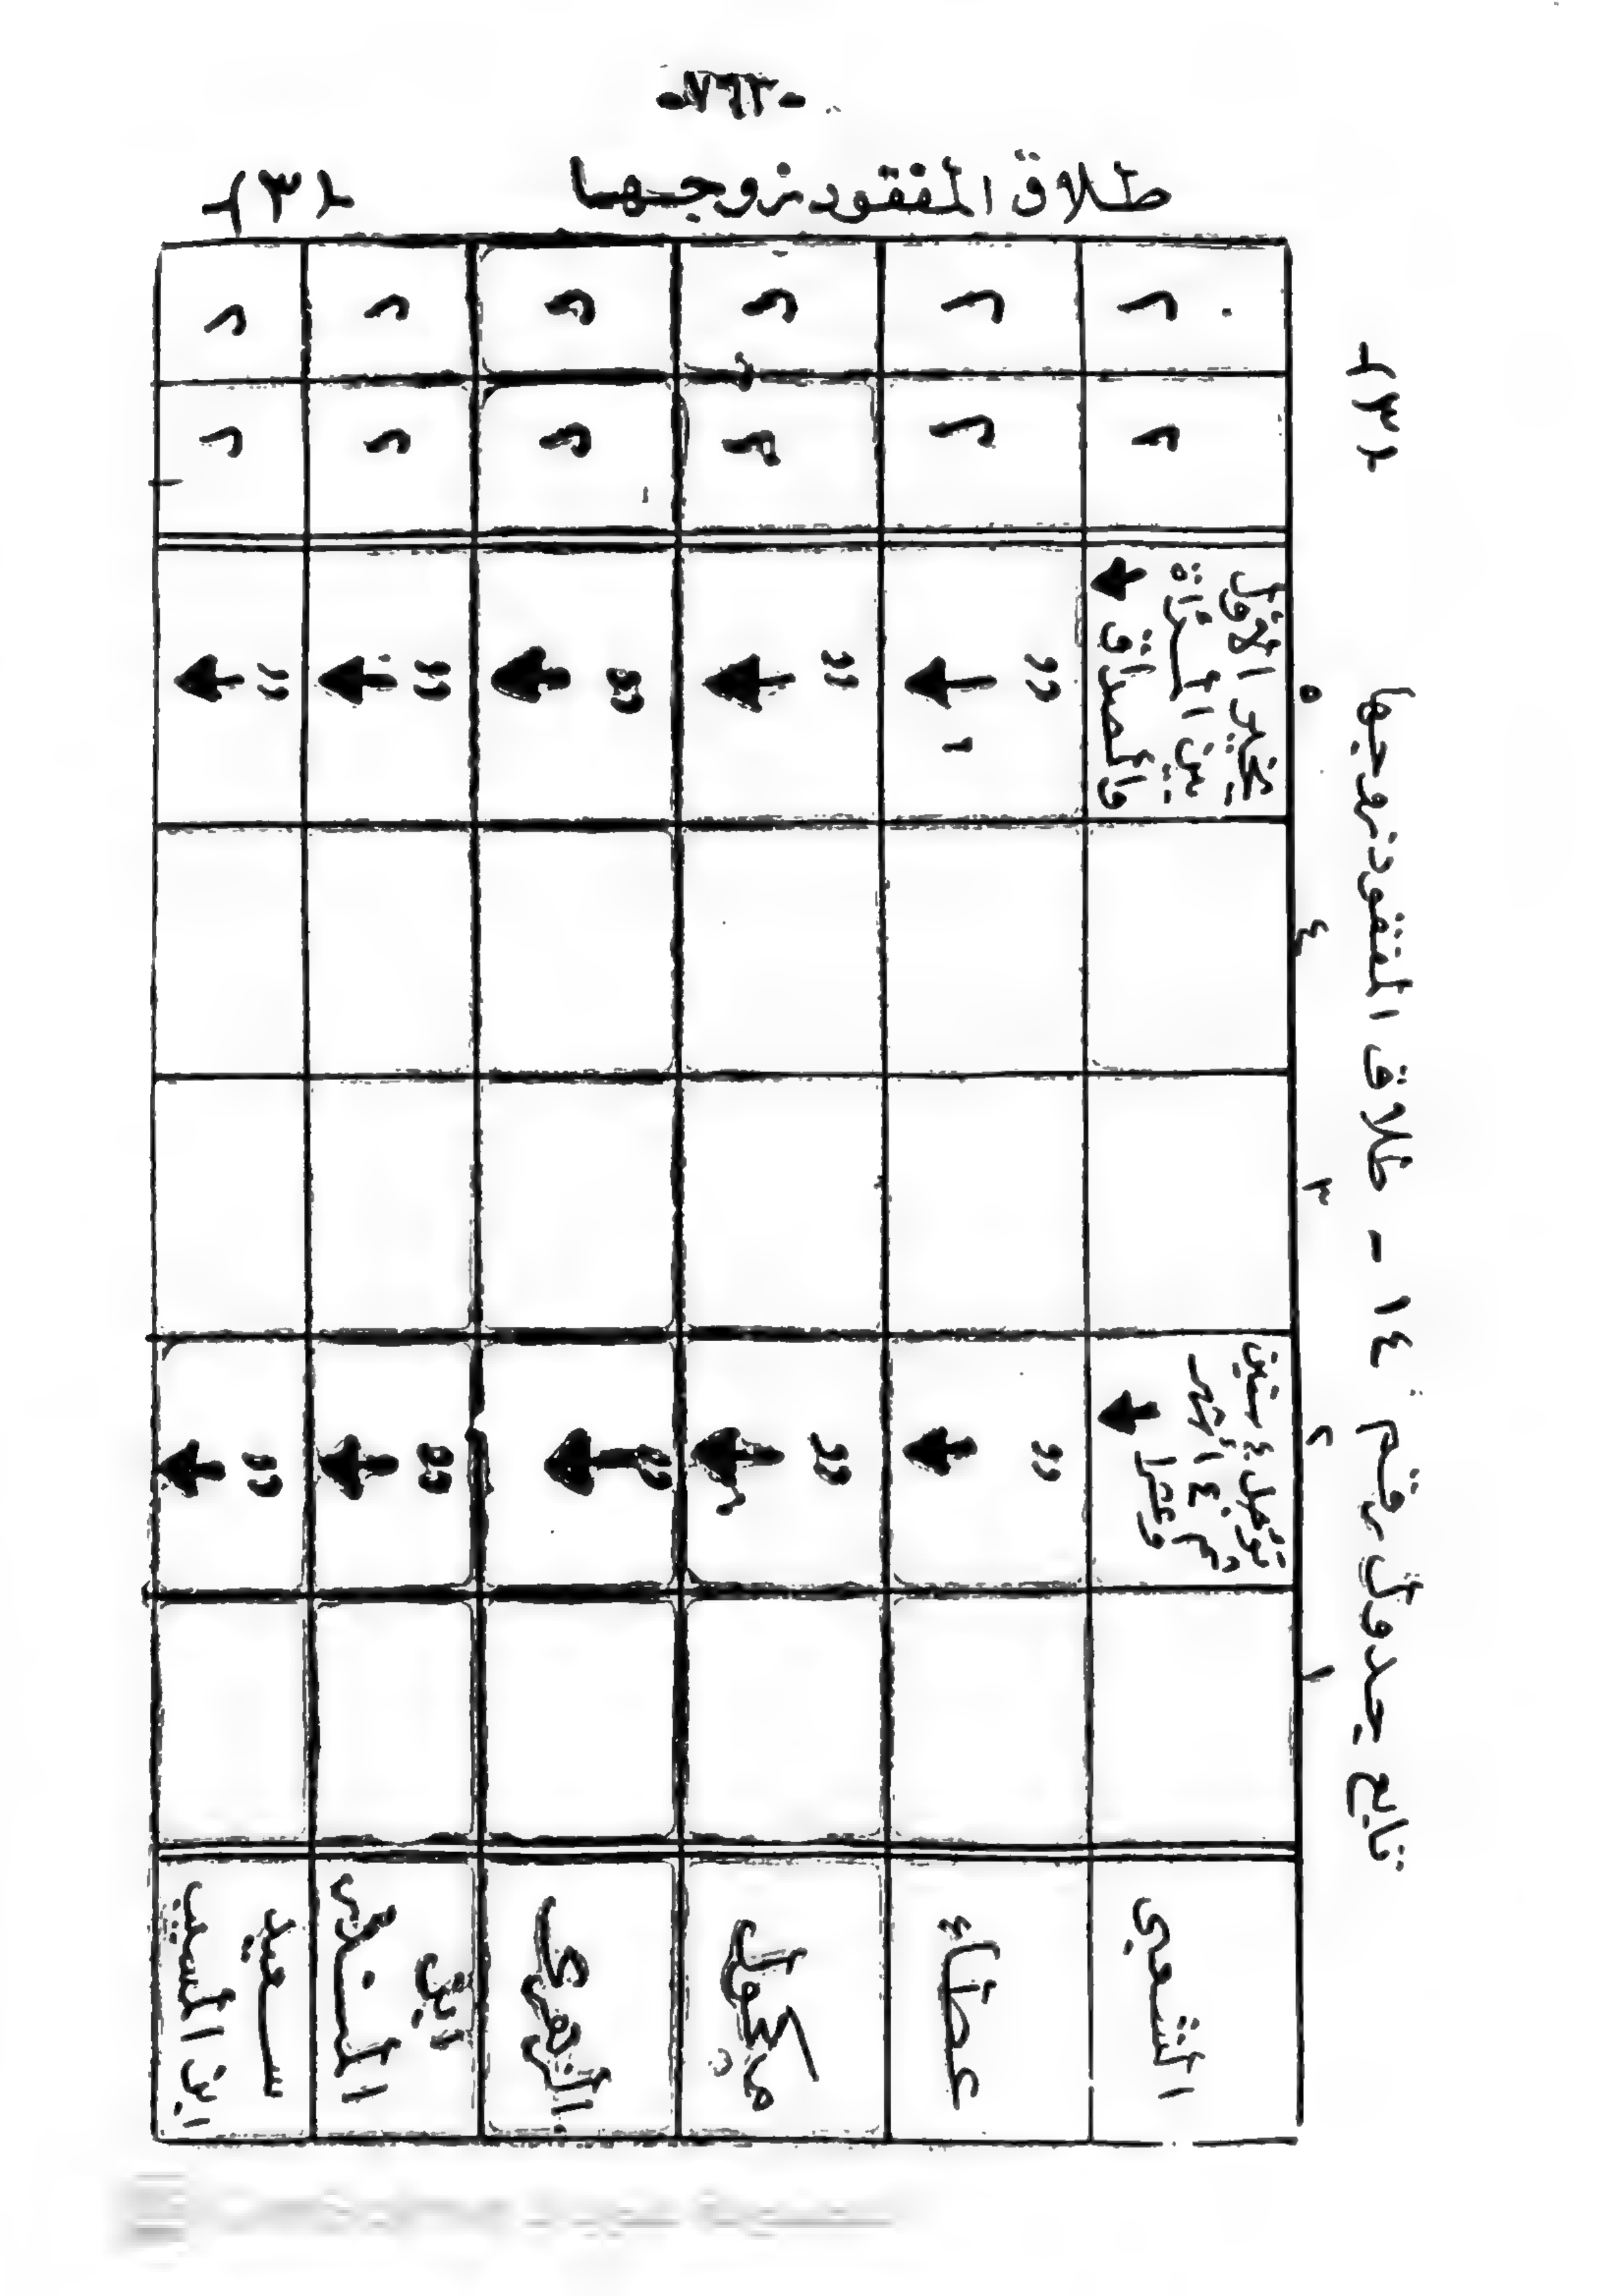 -٧٦٣-
طلاق المفقود زوجها
{٣}
تابع جدول رقم ١٤ - طلاق المفقود زوجها {٣}
١ ٢ ٣ ٤ ٥
الشعبى
تؤجل ٤ سنين
ثم ٤ أشهر
وعشرا
تخيير الأول
بين المرأة
والصداق
٢ ٢
عطاء
" " ٢ ٢
مكحول
" " ٢ ٢
الزهرى
" " ٢ ٢
ابن
المنذر
" " ٢ ٢
سعيد
ابن المسيب
" " ٢ ٢